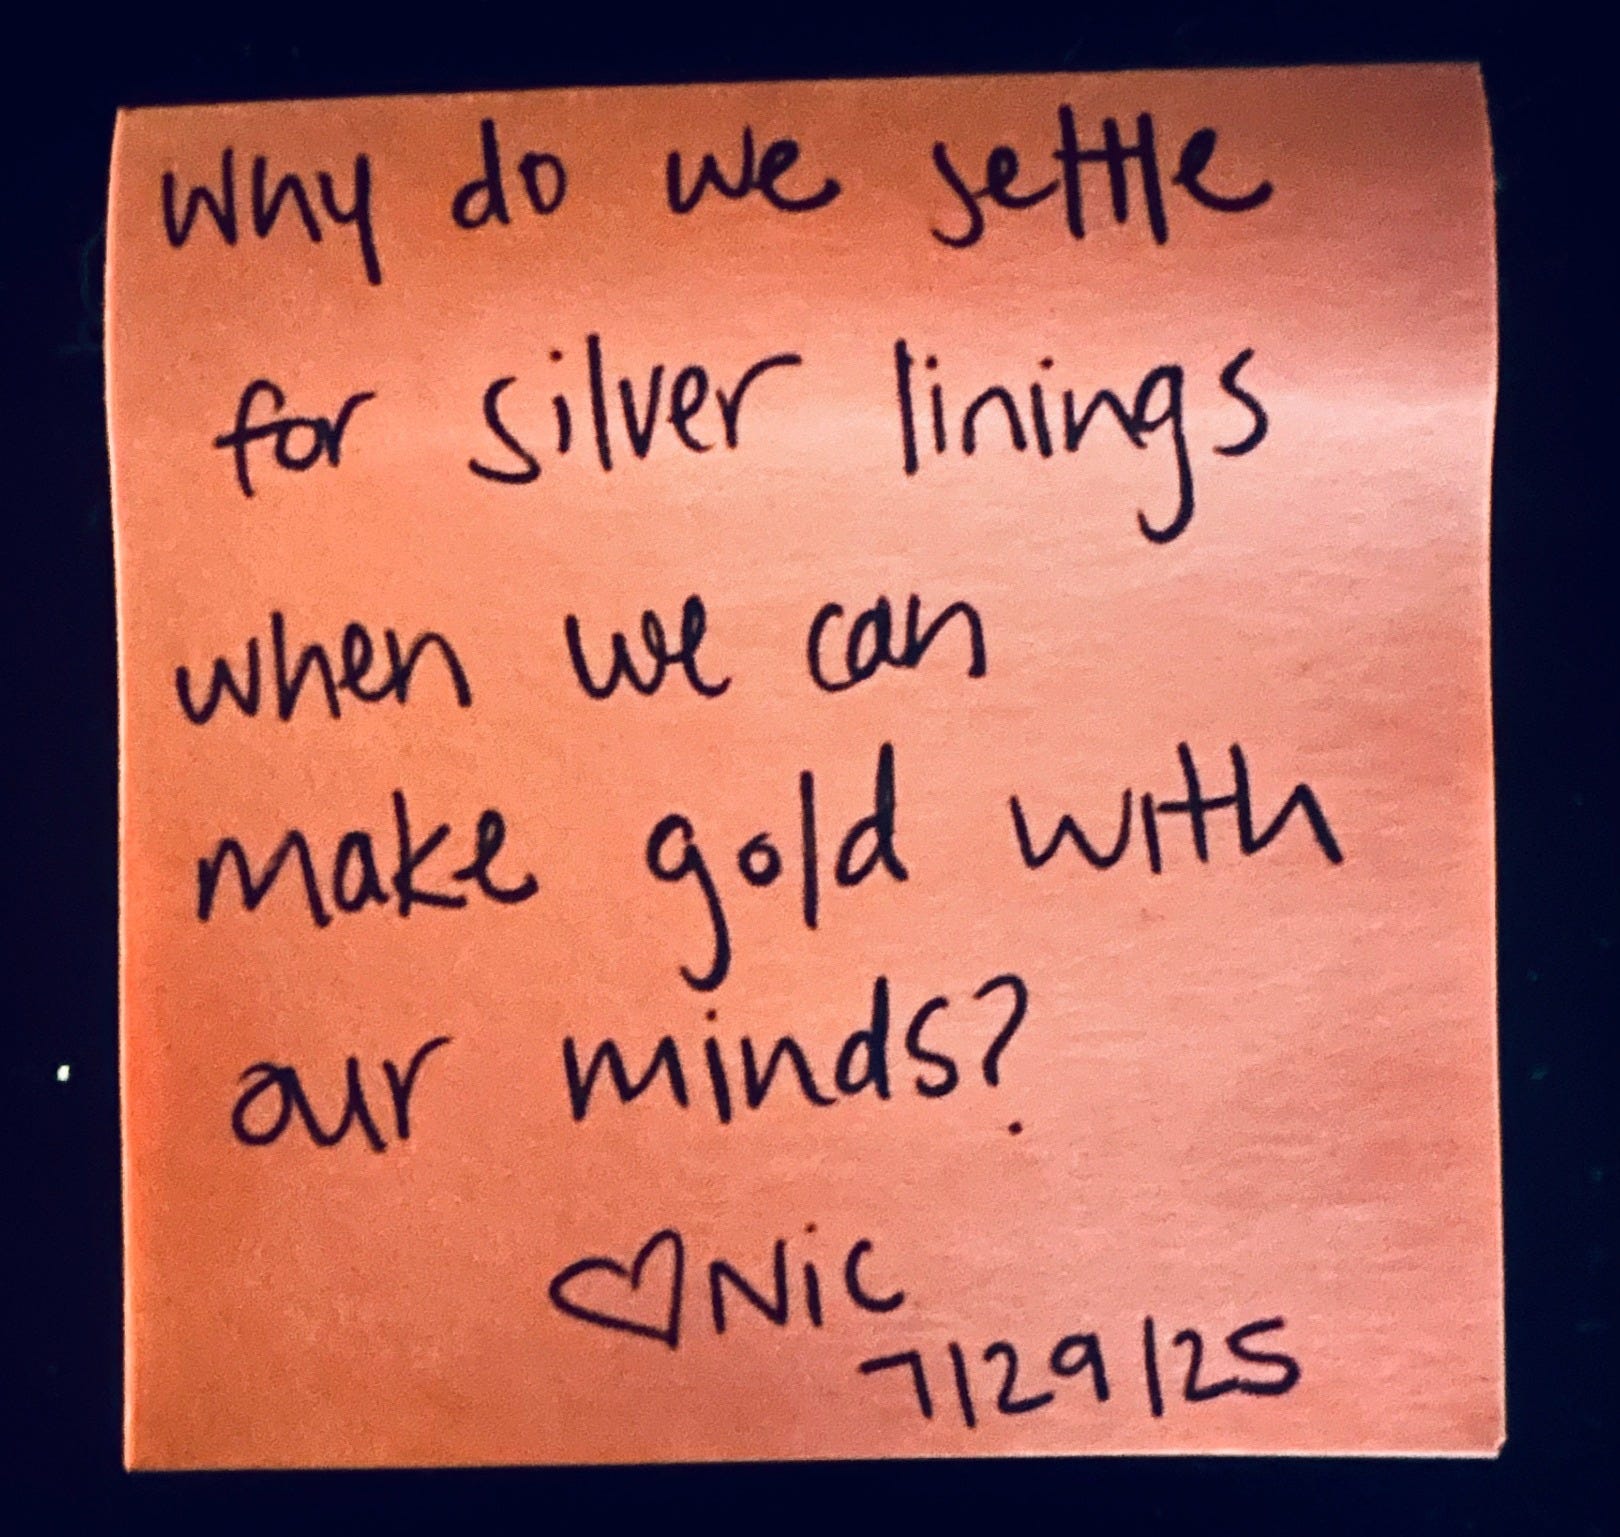 Why do we settle
for silver linings
when we can
make gold with
our minds?
♡ Nic
7/29/25